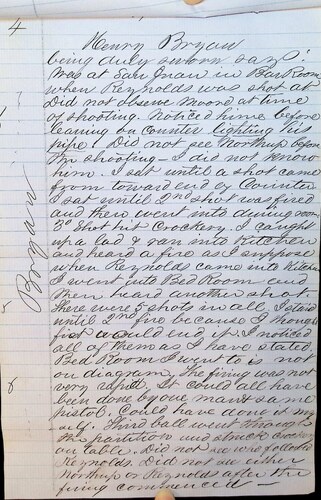 4
Henry Bryan
being duly sworn says
Was at San Juan in Bar Room
when Reynolds was shot at
Did not observe Moore at time
of shooting. Noticed him before
leaning on counter lighting his
pipe. Did not see Northup before
the shooting - I did not know
him. I sat until a shot came
from toward end of Counter
I sat until 2nd shot was fired
and then went into dining room
3d shot hit crockery. I caught
up a lad & ran into Kitchen
and heard a fire as I suppose
when Reynolds came into Kitchen
I went into Bed Room and
then heard another shot.
There were 5 shots in all. I staid
until 2nd fire because I thought
first would end it. I noticed
all of them as I have stated
Bed Room I went to is not
on diagram. The firing was not
very rapid. It could all have
been done by one man & same
pistol. Could have done it my
self. Third ball went through
the partition and struck crockery
on table. Did not see who followed
Reynolds. Did not see either
Northup or Reynolds after the
firing commenced -
Bryan
5
6